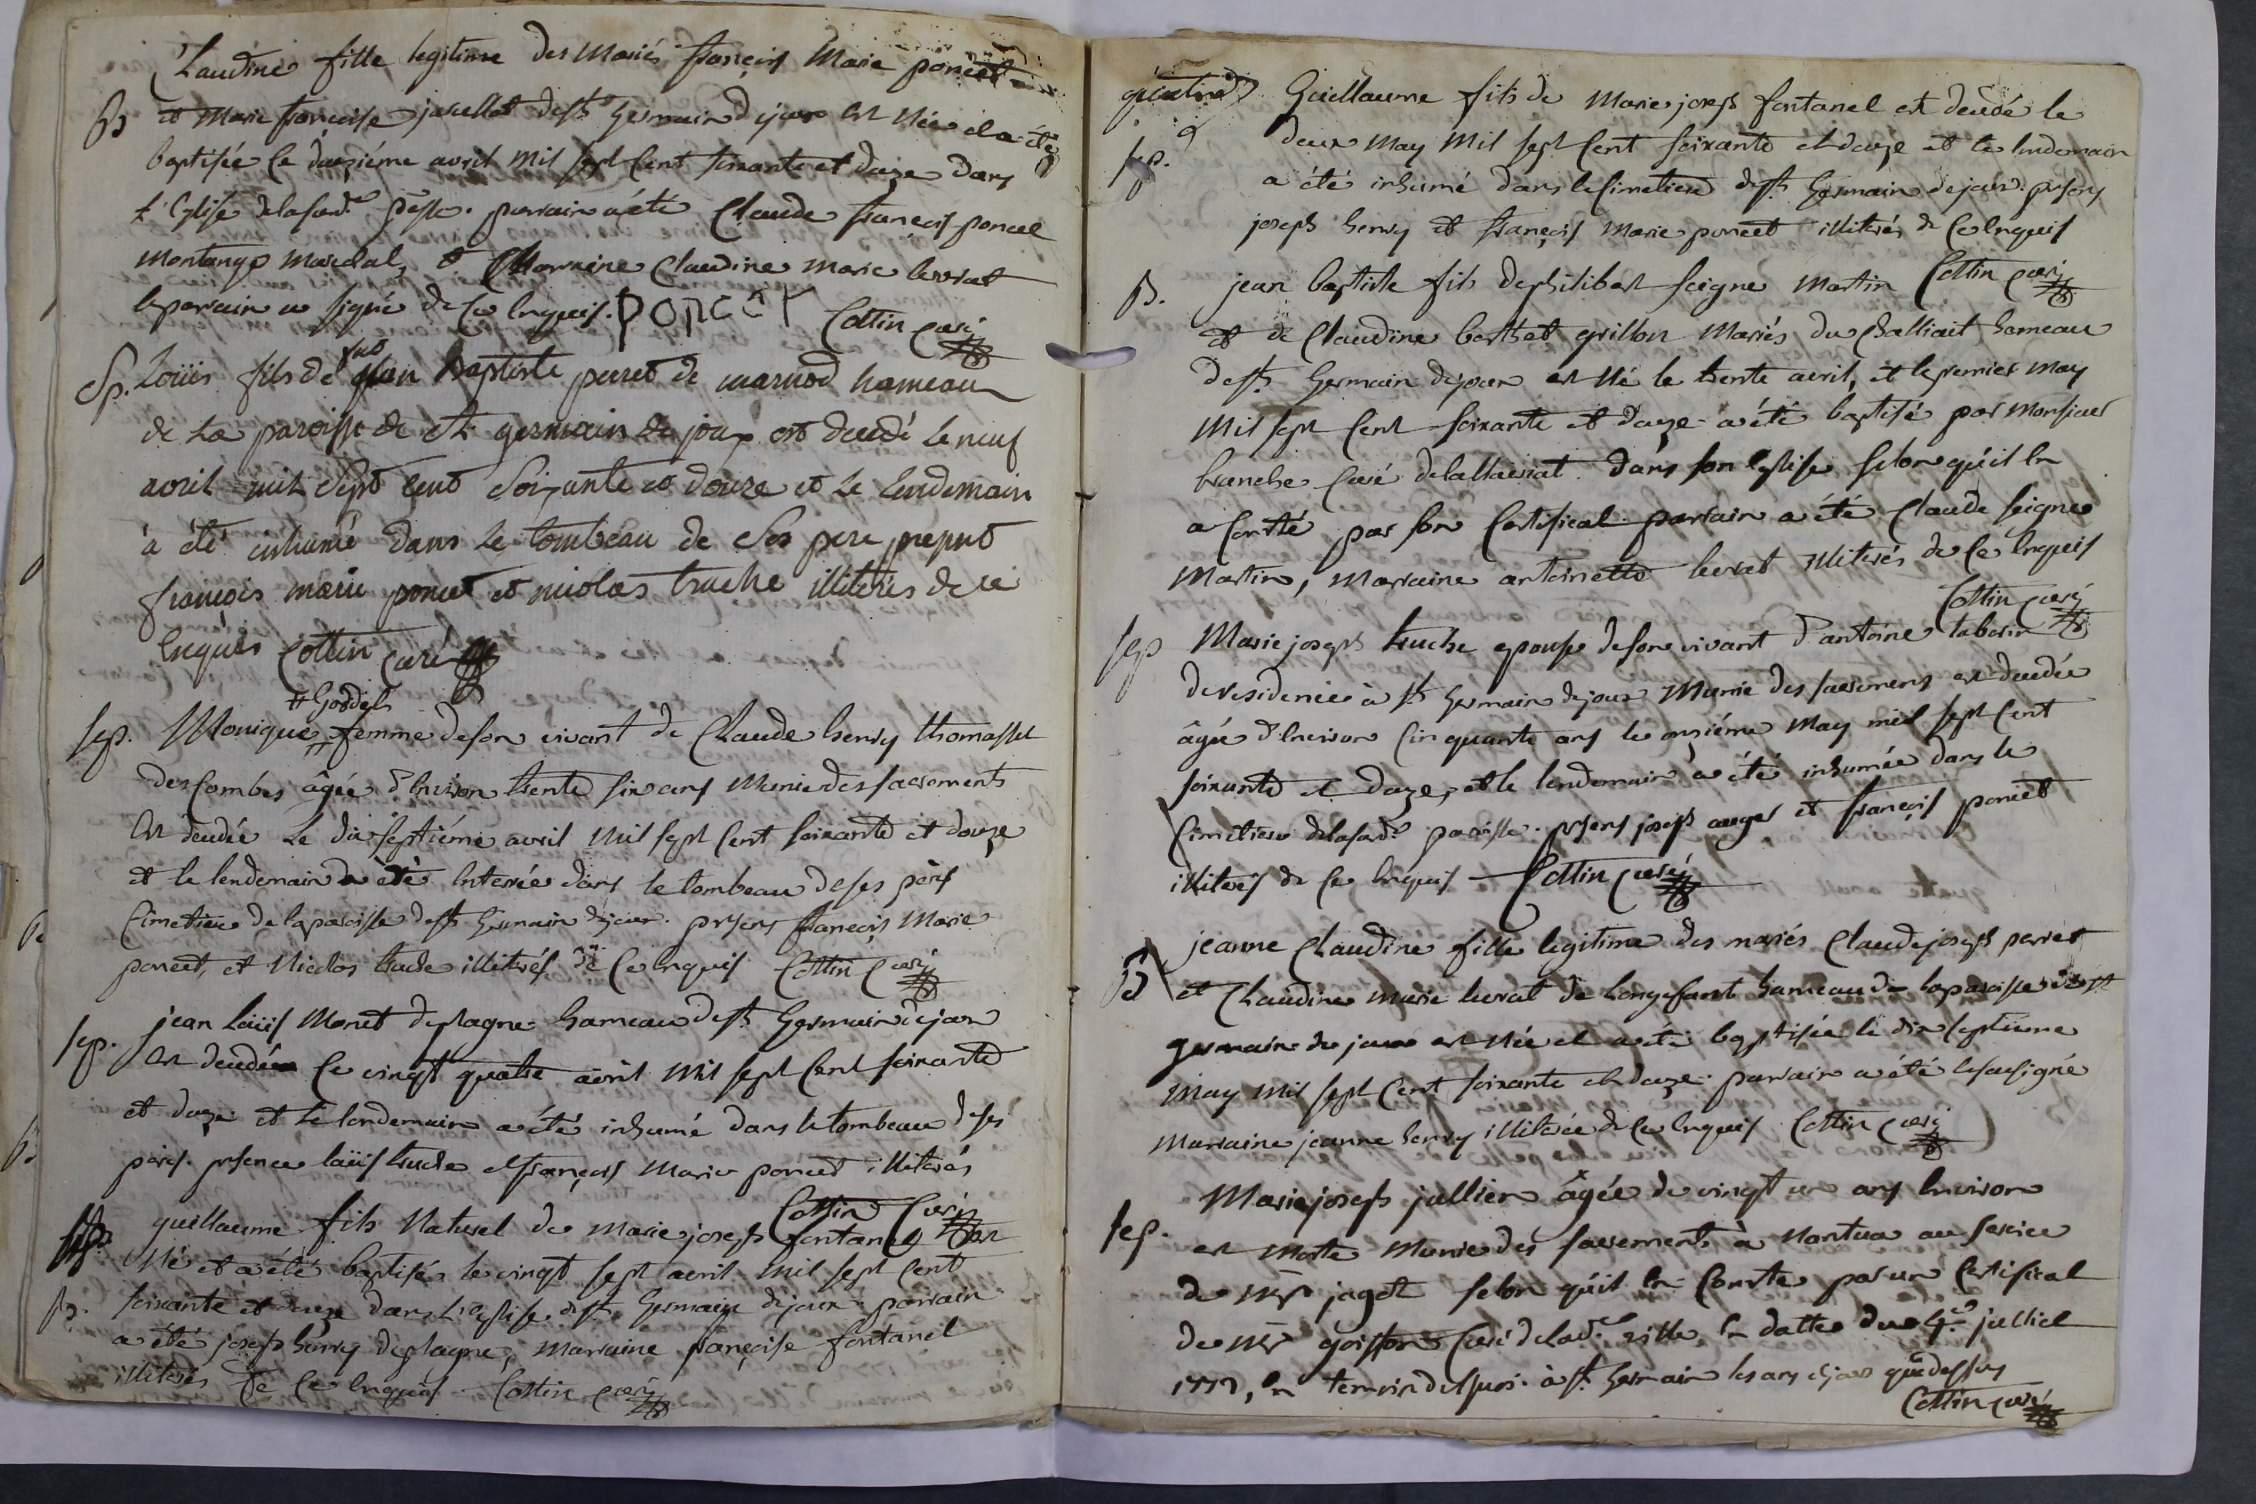 Claudine fille legitime des mariés françois Marie poncet
B et Marie françoise javellot de st germain de joux est née et a été
baptisée le douziéme avril mil sept cent soixante et douze dans
l'Eglise de la susd.e psse. parrain a été Claude françois poncet
montange marechal, et Marraine Claudine Marie levrat
le parrain a signé de ce enquis. PONCET Cottin curé
Sp. Loüis fils de feu jean Baptiste perret de marnod hameau
de la paroisse de st germain de joux est decedé le neuf
avril mil sept cent soixante et douze et le lendemain
à été inhumé dans le tombeau de ses pere present
françois marie poncet et nicolas truche illiterés de ce
enquis Cottin curé
# Godet
sep. Monique # femme de son vivant de Claude henry thomasset
des combes âgée d'environ trente six ans Munie des sacrements
est decedée le dix septiéme avril mil sept cent soixante et douze
et le lendemain a été enterrée dans le tombeau de ses peres
Cimetiere de la paroisse de st germain de joux. presens françois Marie
poncet, et Nicolas truche illiterés de ce enquis Cottin Curé
sep. jean loüis Monet de plagne hameau de st germain de joux
est decedé le vingt quatre avril mil sept cent soixante
et douze et le lendemain a été inhumé dans le tombeau de ses
peres. presence loüis truche et françois Marie poncet illiterés
Cottin Curé
guillaume fils Naturel de marie joseph fontanel est
Né et a été baptisé le vingt sept avril mil sept cent
B. soixante et douze dans l'eglise de st germain de joux. parrain
a été joseph henry de plagne, marraine françoise fontanel
illiterés de ce enquis. Cottin curé
Guillaume fils de Marie joseph fontanel est decedé le
sep. deux may mil sept cent soixante et douze et le lendemain
a été inhumé dans le cimetiere de st germain de joux. presens
joseph henry et françois Marie poncet illiterés de ce enquis
Cottin curé
B. jean baptiste fils de philibert seigne martin
et de Claudine berthet grillon Mariés du challiait hameau
de st germain de joux est né le trente avril, et le premier may
mil sept cent soixante et douze a été baptisé par monsieur
branche curé de lalleyriat dans son eglise selon qu'il en
a conté par son certificat parrain a été Claude seigne
martin, marraine antoinette levrat illiterés de ce enquis
Cottin curé
sep Marie joseph truche epouse de son vivant d'antoine tabarin
de residence à st germain de joux Munie des sacremens est decedée
âgée d'environ cinquante ans le onziéme may mil sept cent
soixante et douze, et le lendemain a été inhumée dans le
Cimetiere de la susd.e paroisse. presens joseph auger et françois poncet
illiterés de ce enquis Cottin curé
B jeanne Claudine fille legitime des mariés Claude joseph perret
et Claudine marie levrat de longefant hameau de la paroisse de st
germain de joux est née et a été baptisée le dix septieme
may mil sept cent soixante et douze. parrain a été le sousigné
marraine jeanne henry illiterée de ce enquis Cottin curé
sep. Marie joseph jullien âgée de vingt un ans environ
est morte Munie des sacrements à Nantua au service
de Mr jagot selon qu'il en conste par un certificat
de Mr goiffon Curé de lad.e ville en datte du 4.e julliet
1772, en temoin de quoi à st germain les ans et jour que dessus
Cottin curé